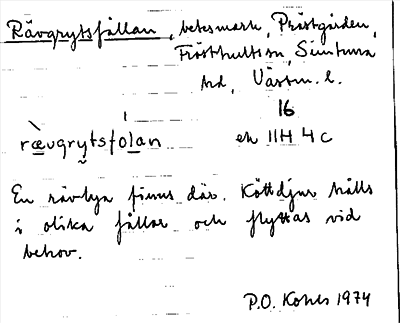 Rävgrytsfållan, betesmark, Prästgården,
Frösthultssn, Simtuna
hd, Västm. l.
16
rævgry̆tsfo̲lan ek 11H 4c
En rävlya finns där. Köttdjur hålls
i olika fållor och flyttas vid
behov.
P.O. Kohls 1974